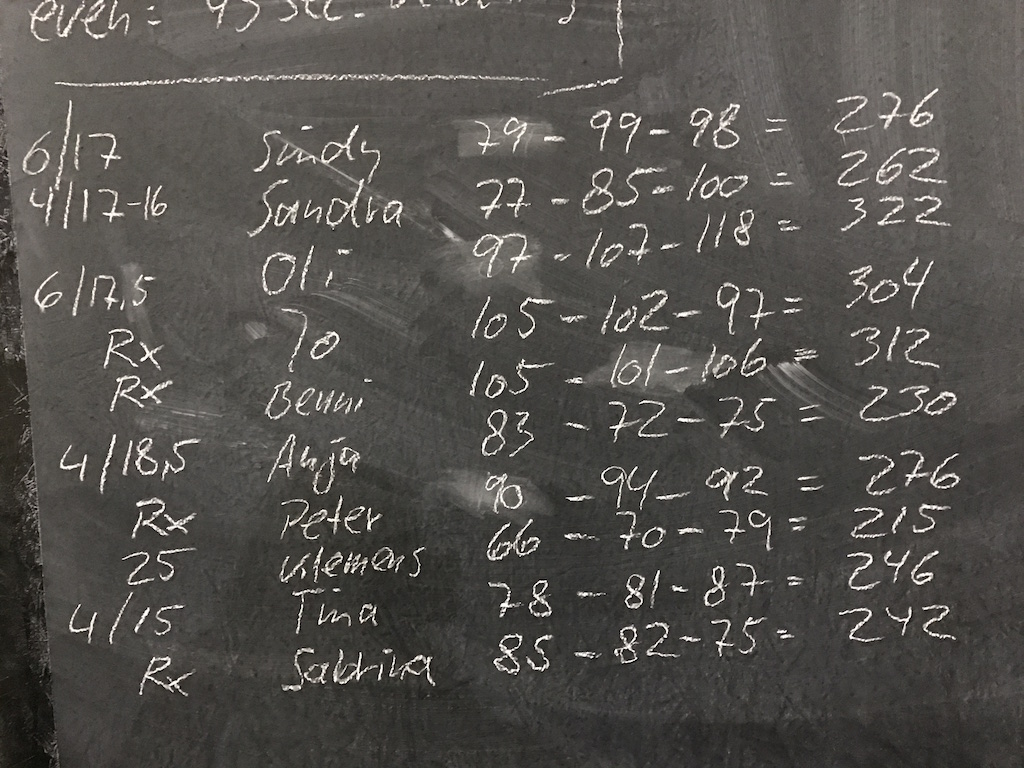 even: 45 sec.
6/17 Sindy 79 - 99 - 98 = 276
4/17-16 Sandra 77 - 85 - 100 = 262
6/17,5 Oli 97 - 107 - 118 = 322
Rx Jo 105 - 102 - 97 = 304
Rx Benni 105 - 101 - 106 = 312
4/18,5 Anja 83 - 72 - 75 = 230
Rx Peter 90 - 94 - 92 = 276
25 Klemens 66 - 70 - 79 = 215
4/15 Tina 78 - 81 - 87 = 246
Rx Sabrina 85 - 82 - 75 = 242